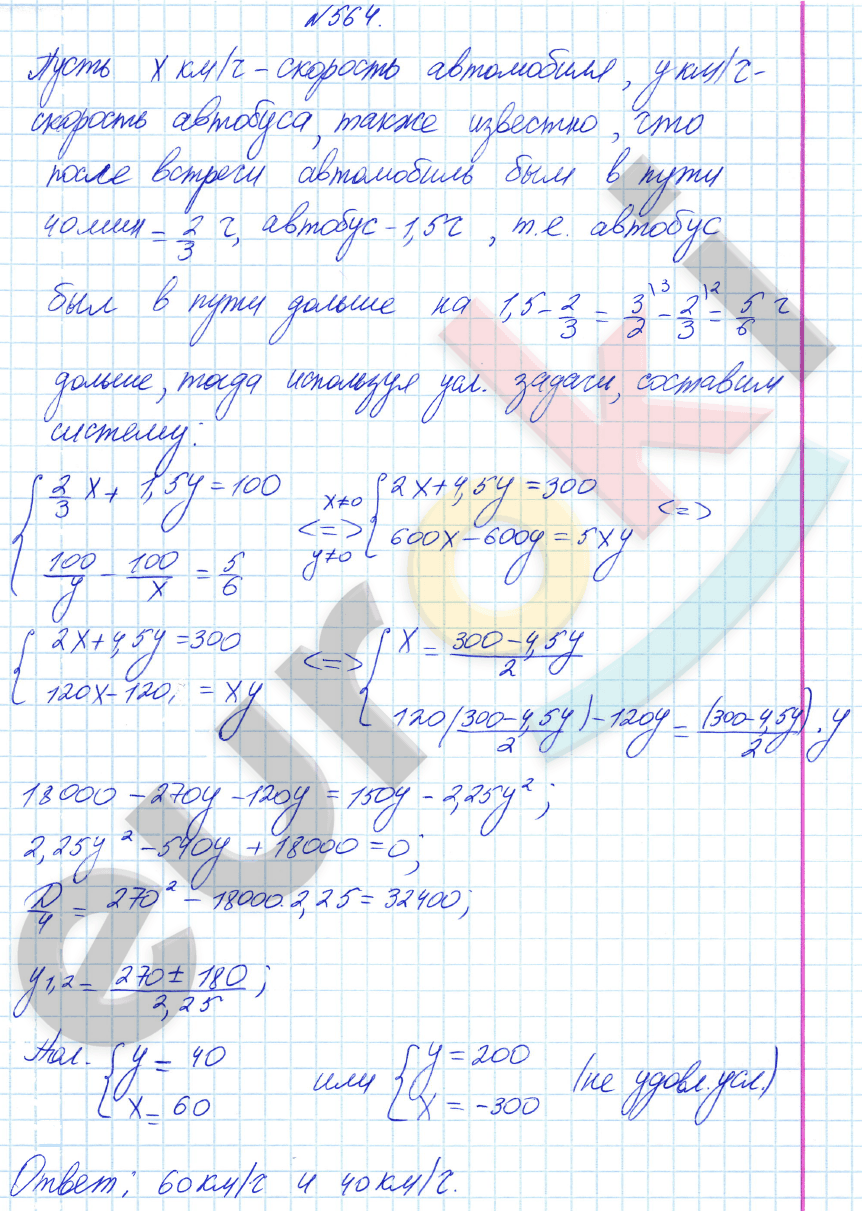 №564.
Пусть x км/ч – скорость автомобиля, y км/ч –
скорость автобуса, также известно, что
после встречи автомобиль был в пути
40 мин = 2/3 ч, автобус – 1,5 ч, т.е. автобус
был в пути дольше на 1,5 – 2/3 = 3\3/2 – 2\2/3 = 5/6 ч
дольше, тогда используя усл. задачи, составим
систему:
{ 2/3 x + 1,5y = 100 <=> x≠0 y≠0 { 2x + 4,5y = 300 <=>
100/y – 100/x = 5/6 600x – 600y = 5xy
{ 2x + 4,5y = 300 <=> { x = (300 – 4,5y)/2
120x – 120 = xy 120((300 – 4,5y)/2) – 120y = (300 – 4,5y)/2 · y
18000 – 270y – 120y = 150y – 2,25y²;
2,25y² – 540y + 18000 = 0;
D/4 = 270² – 18000·2,25 = 32400;
y1,2 = (270 ± 180)/2,25;
Пол. { y = 40 или { y = 200 (не удовл. усл.)
x = 60 x = -300
Ответ: 60 км/ч и 40 км/ч.
euroki